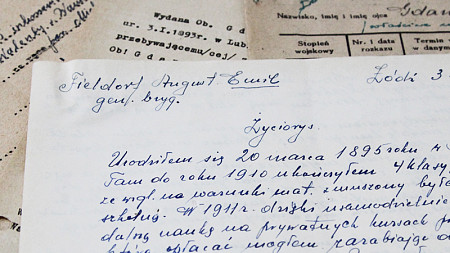 Wydana Ob. Gd
ur. 3.I.1893r. w Lub
przebywającemu/cej/
Ob! G d a
Nazwisko, imię i imię ojca
Gdan
Stopień
wojskowy
Nr i data
rozkazu
Termin
w danym
1.
Fieldorf August Emil
gen. bryg.
Łódź 3
Życiorys.
Urodziłem się 20 marca 1895 roku w
Tam do roku 1910 ukończyłem 4 klasy
ze wzgl. na warunki mat. zmuszony był
szkolną. W 1911 r. dzięki usamodzielnie
dalszą naukę na prywatnych kursach
które opłacać mogłem zarabiając